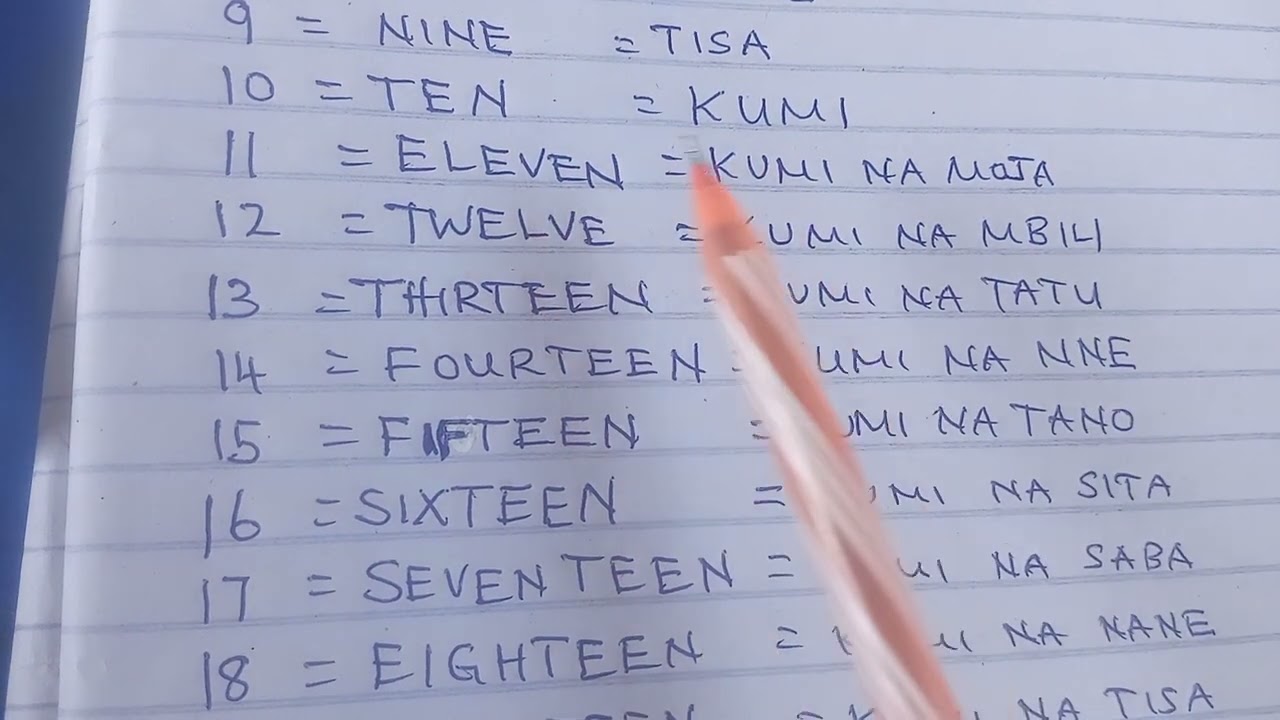 9 = NINE = TISA
10 = TEN = KUMI
11 = ELEVEN = KUMI NA MOJA
12 = TWELVE = KUMI NA MBILI
13 = THIRTEEN = KUMI NA TATU
14 = FOURTEEN = KUMI NA NNE
15 = FIFTEEN = KUMI NA TANO
16 = SIXTEEN = KUMI NA SITA
17 = SEVENTEEN = KUMI NA SABA
18 = EIGHTEEN = KUMI NA NANE
NA TISA